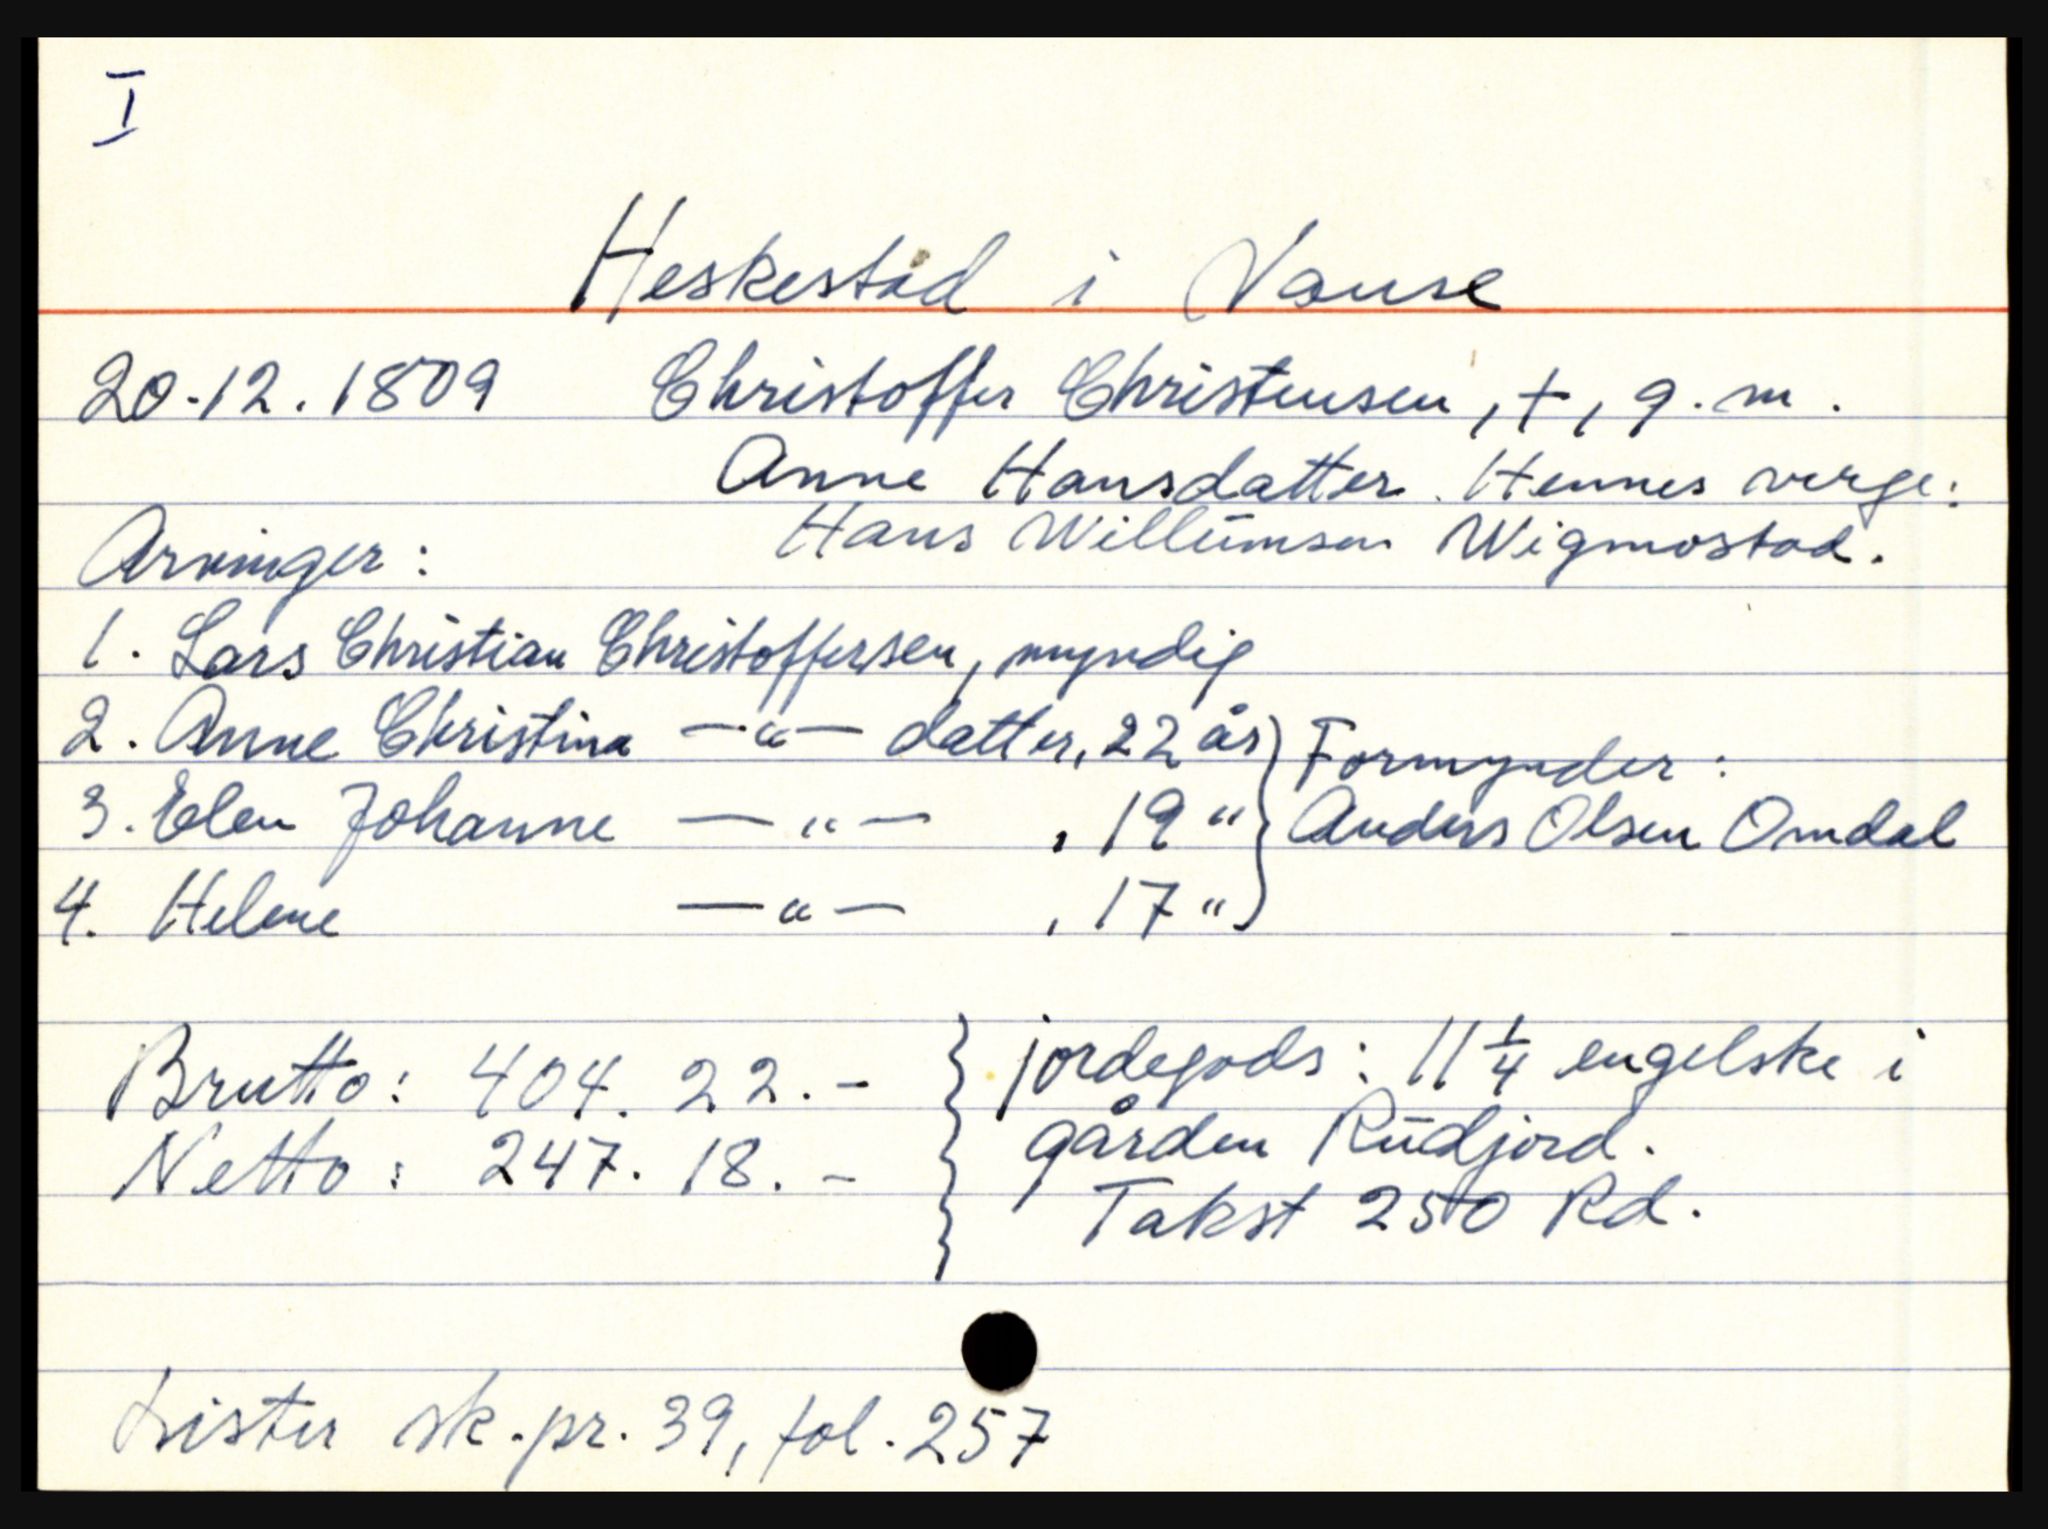 I
Heskestad i Vanse
20.12.1809 Christoffer Christensen, †, g.m.
Anne Hansdatter. Hennes verge:
Arvinger: Hans Willumsen Wigmostad.
1. Lars Christian Christoffersen, myndig
2. Anne Christina —"— datter, 22 år } Formynder:
3. Elen Johanne —"— , 19 " } Anders Olsen Omdal
4. Helene —"— , 17 " }
Brutto: 404. 22. - } jordegods: 11 1/4 engelske i
Netto: 247. 18. - } gården Rudjord.
Takst 250 Rd.
Lister sk.pr. 39, fol. 257